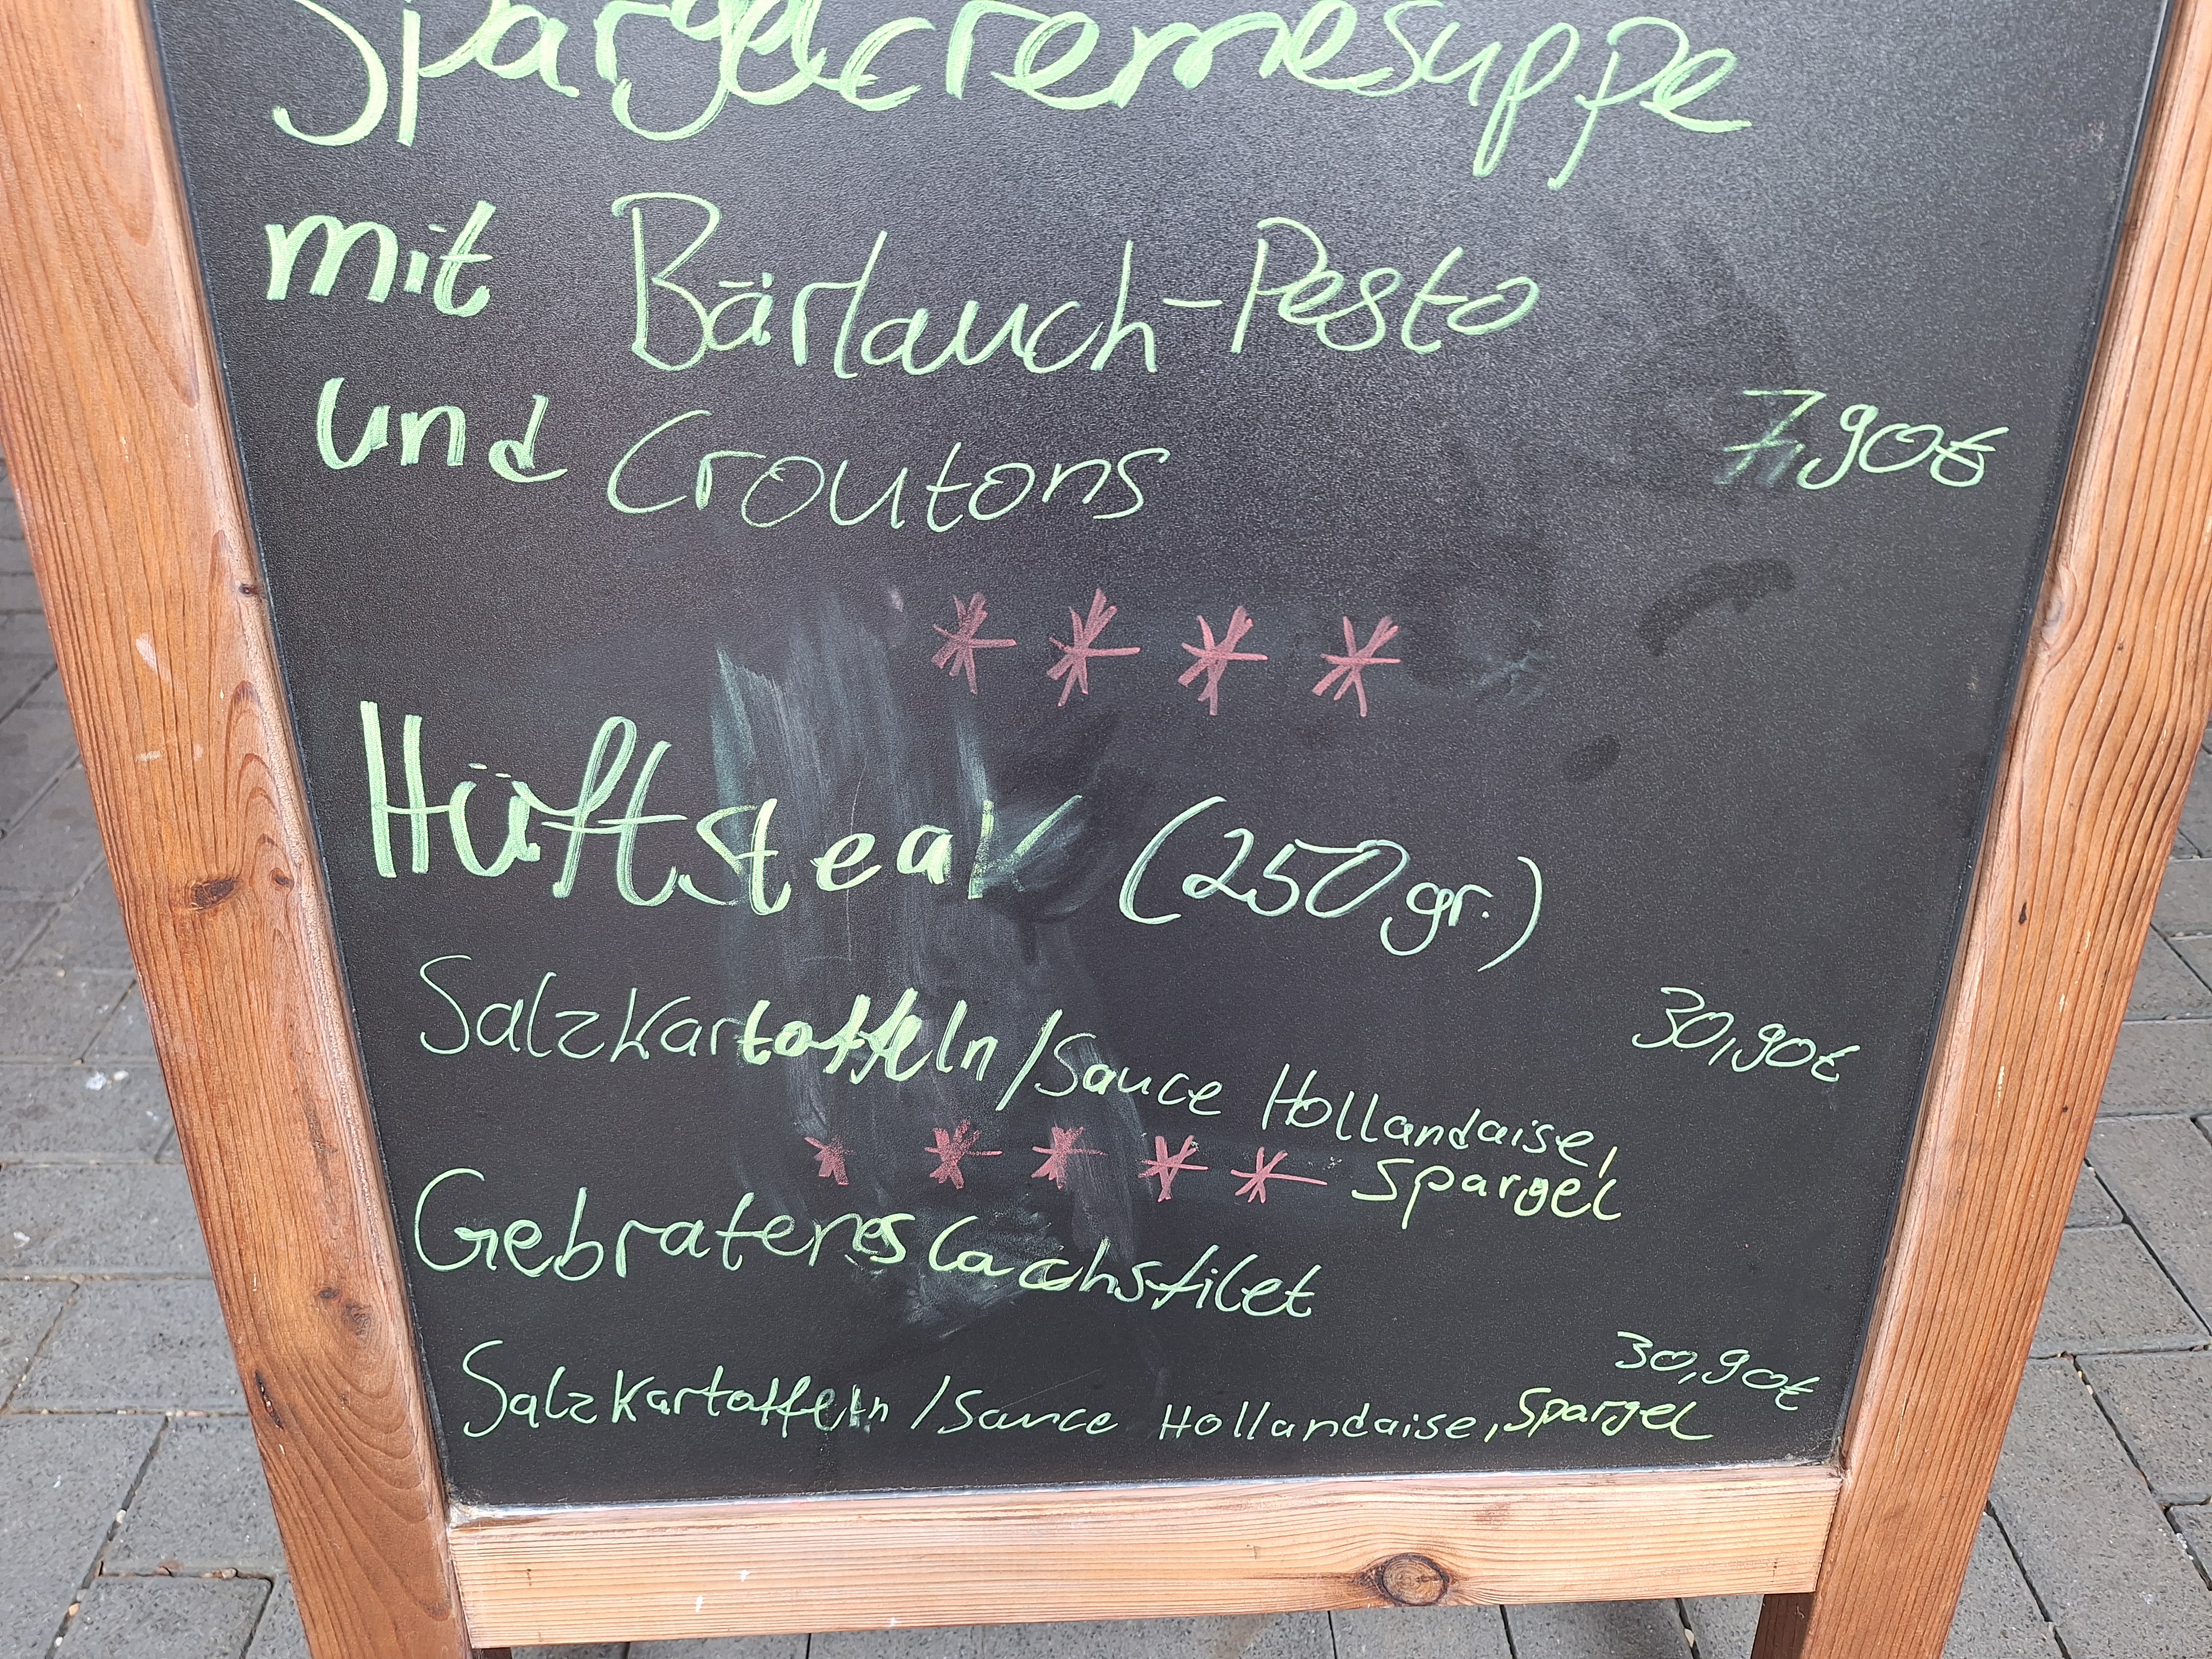 Spargelcremesuppe
mit Bärlauch-Pesto
und Croutons 7,90€
* * * *
Hüftsteak (250 gr.)
Salzkartoffeln/Sauce Hollandaise, 30,90€
* * * * * Spargel
Gebratenes Lachsfilet
30,90€
Salzkartoffeln/Sauce Hollandaise, Spargel